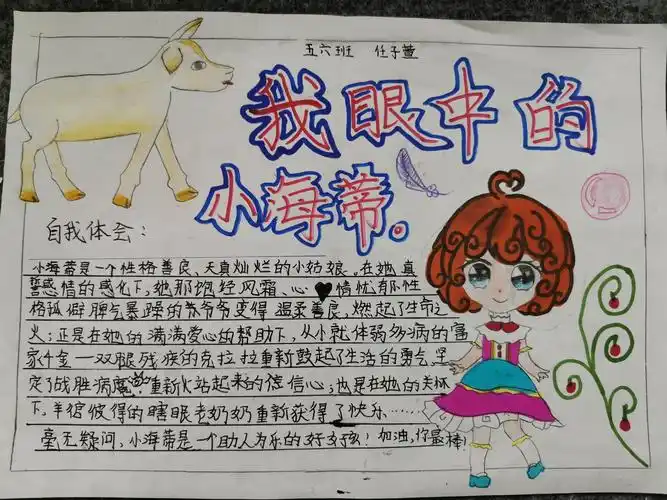 五六班 任子萱
我眼中的
小海蒂。
自我体会：
小海蒂是一个性格善良、天真灿烂的小姑娘。在她真
挚感情的感化下，她那饱经风霜、心情忧郁性
格孤僻脾气暴躁的爷爷变得温柔善良，燃起了生命之
火；正是在她的满满爱心的帮助下，从小就体弱多病的富
家千金—双腿残疾的克拉拉重新鼓起了生活的勇气，坚
定了战胜病魔 重新站起来的信心；也是在她的关怀
下，羊倌彼得的瞎眼老奶奶重新获得了快乐……
毫无疑问，小海蒂是一个助人为乐的好女孩！加油，你最棒！